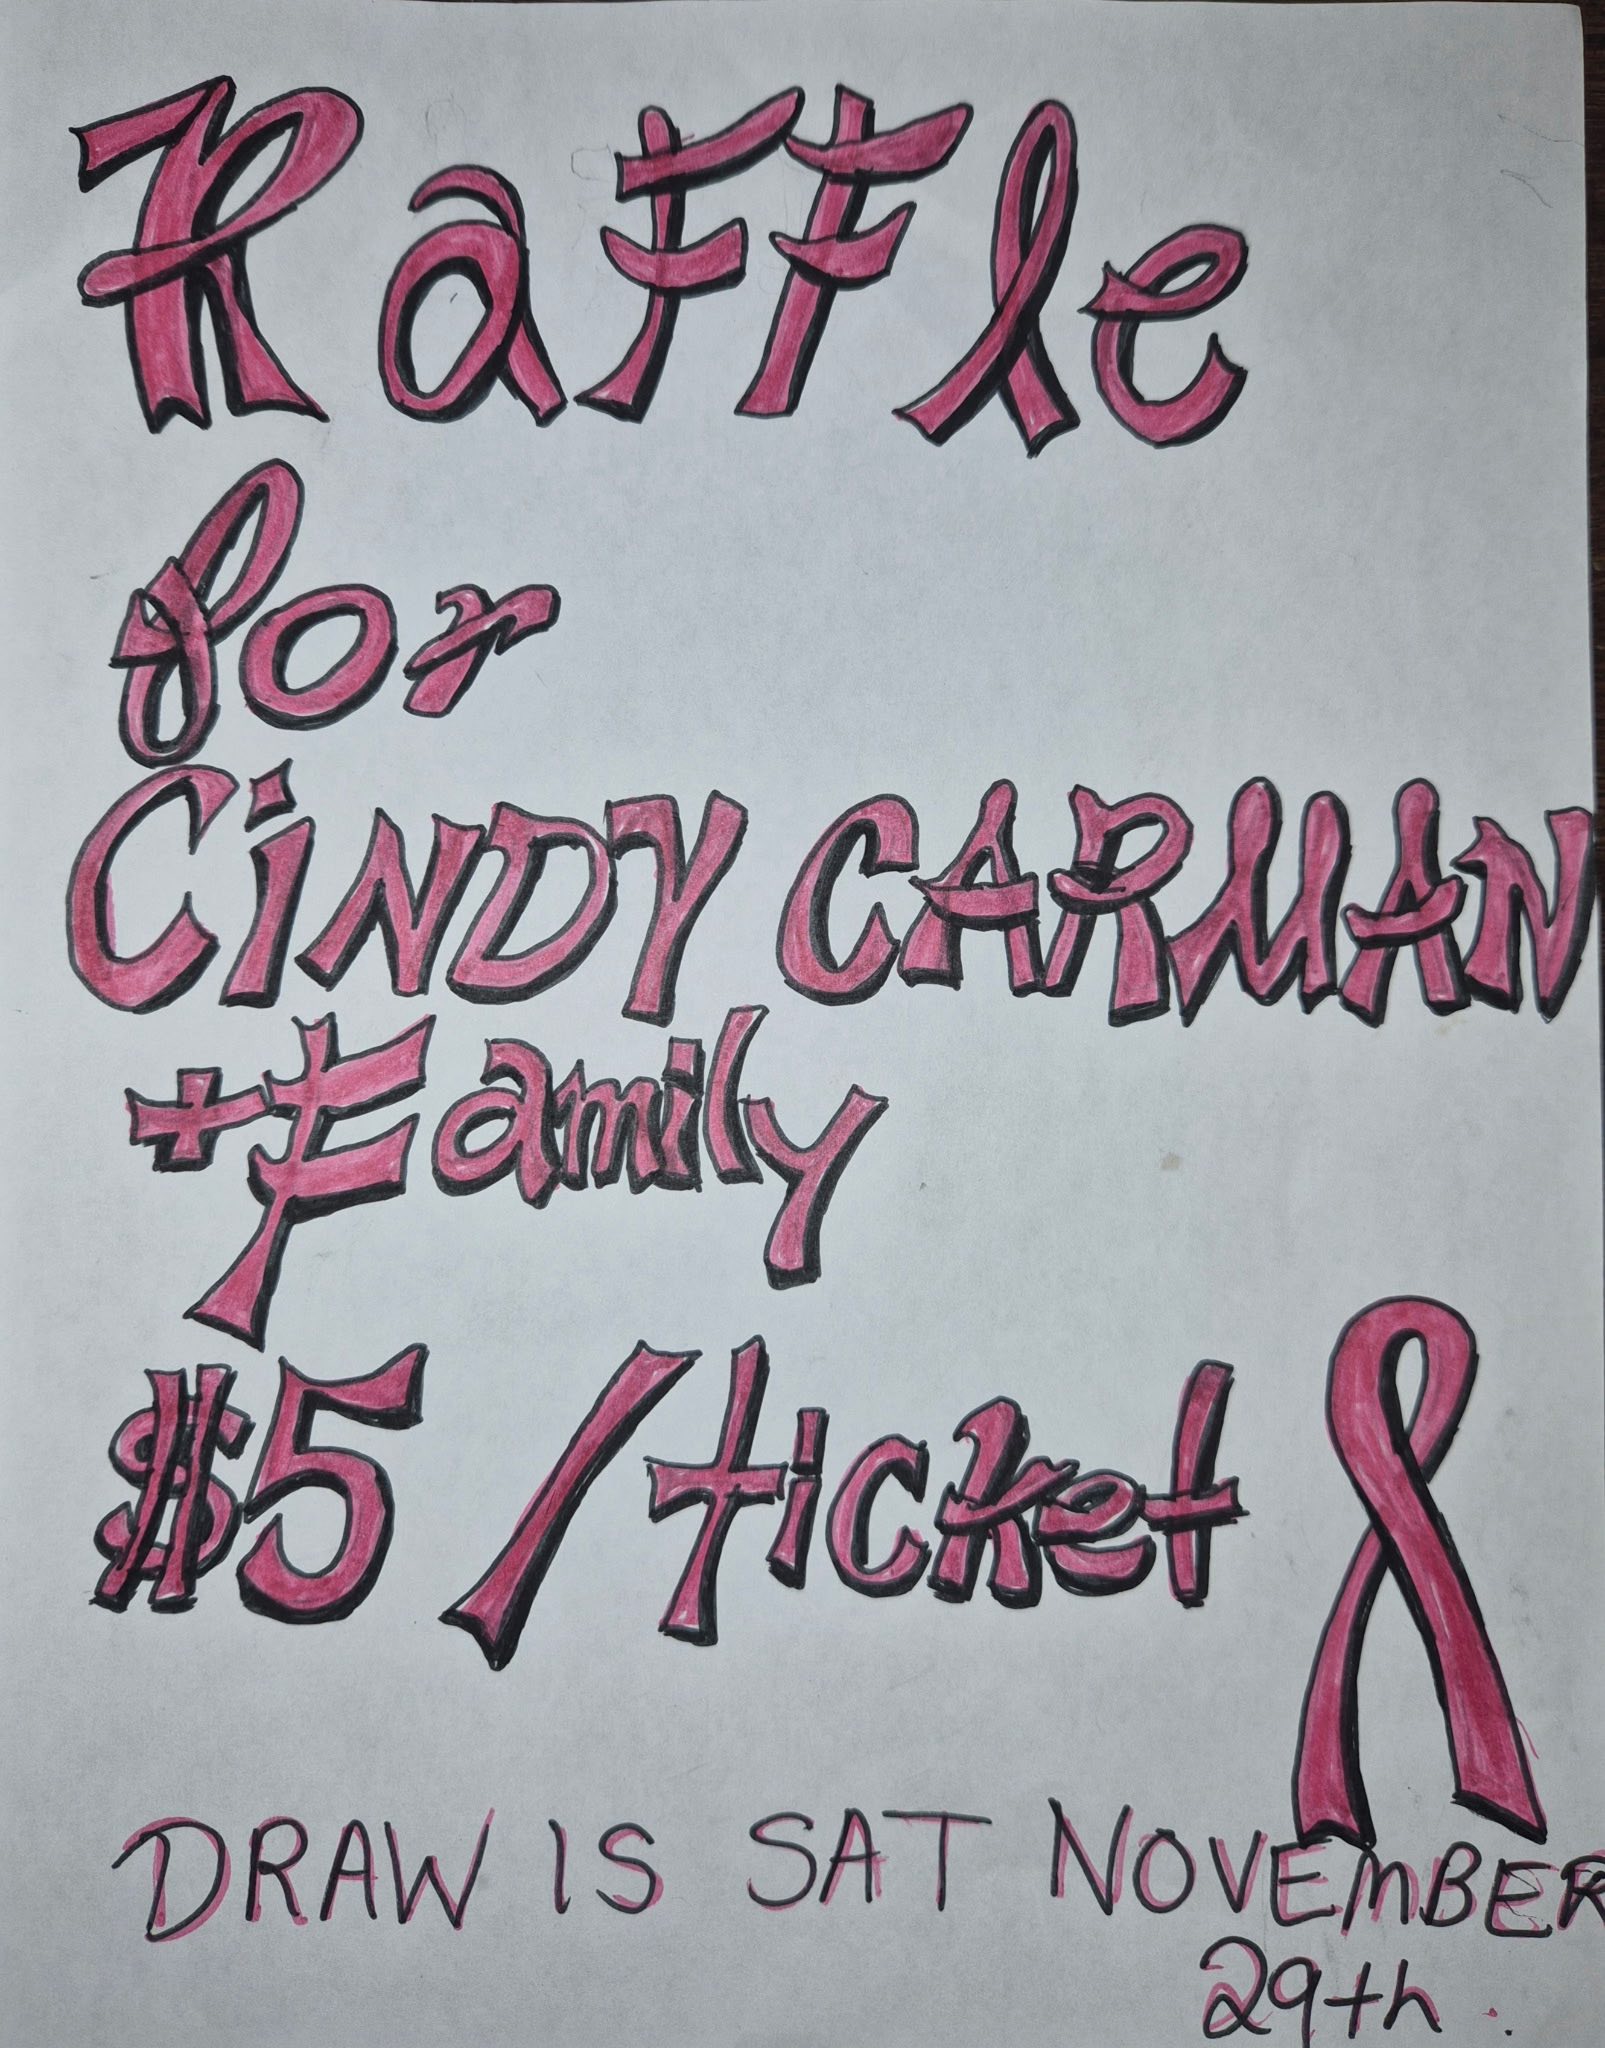 Raffle
for
CiNDY CARMAN
+ Family
$5 / ticket
DRAW IS SAT NOVEMBER
29th.